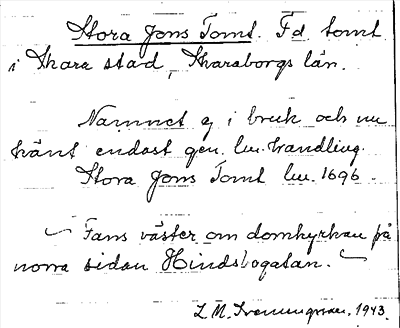 Stora Jons Tomt. Fd tomt
i Skara stad, Skaraborgs län.
Namnet ej i bruk och nu
känt endast gen. lm. handling.
Stora Jons Tomt lm. 1696.
Fans väster om domkyrkan på
norra sidan Hindsbogatan.
L. M.
1943.